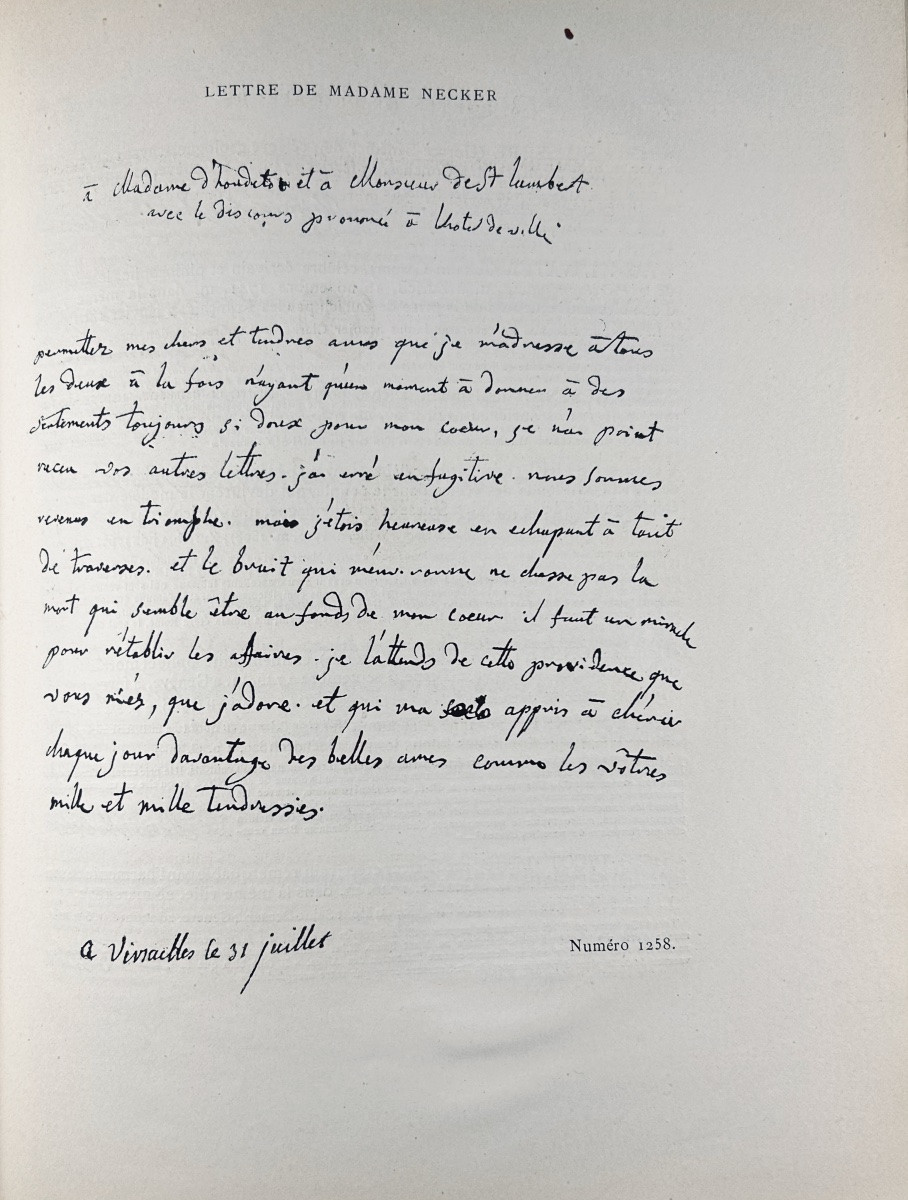 LETTRE DE MADAME NECKER
à Madame d'houdetot et à Monsieur de St lambert
avec le discours prononcé à lhotel de ville
permettez mes chers et tendres amis que je m'adresse à tous
les deux à la fois n'ayant qu'un moment à donner à des
sentements toujours si doux pour mon coeur, je n'ai point
receu vos autres lettres. j'ai erré en fugitive. nous sommes
revenus en triomphe. mais j'étois heureuse en echapant à tant
de traverses. et le bruit qui m'environne ne chasse pas la
mort qui semble être au fonds de mon coeur il faut un miracle
pour rétablir les affaires. je l'attends de cette providence que
vous niés, que j'adore. et qui ma appris à chérir
chaque jour davantage des belles ames comme les vôtres
mille et mille tendresses.
a Versailles le 31 juillet
Numéro 1258.